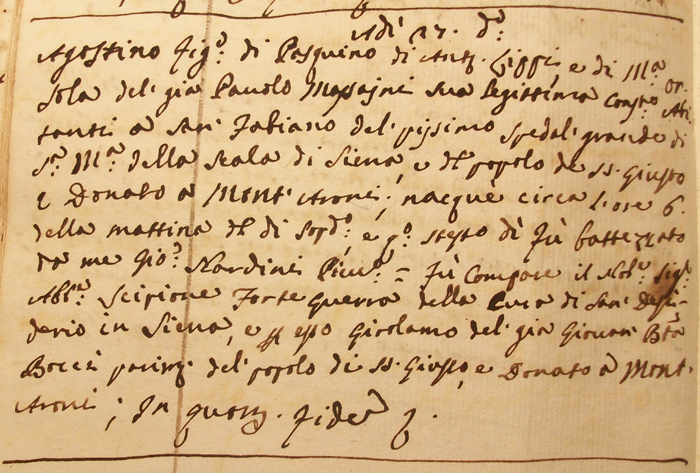 Adì 27. dº:
Agostino figº: di Pasquino di Antº. Ciffi, e di Mª Or:
sola del già Pauolo Massajni sua legittima Consᵗᵉ Abi
tanti a San Fabiano del pijssimo Spedal' grande di
Sª: Mª: della Scala di Siena, e del popolo de SS: Giusto
e Donato a Mont' Aroni; nacque circa l'ore 6:
della mattina del di sopdº:, e qº: stesso dì fù battezzato
da me Gioº: Nardinei Pievº: = fù Compare il Nobº: Sigʳ:
Abbº: Scipione Forte Guerra della Cura di San' Desi:
derio in Siena, e p esso Girolamo del già Giovan' Btª
Bocci parimᵗᵉ. del popolo di SS: Giusto, e Donato a Mont:
Aroni; In quorᵐ. fidem